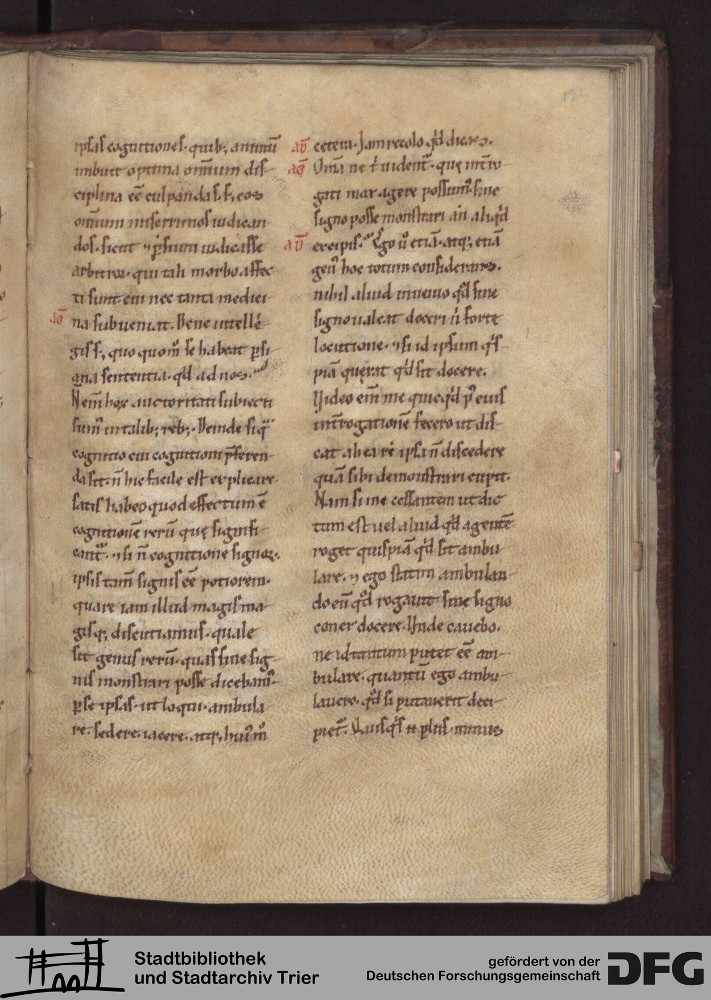 ipsas cognitiones. quib; animũ
imbuit optima omnium dis-
ciplina eẽ culpandas. s; eos
omnium miserrimos iudican-
dos. sicut ⁊ p̃sium iudicasse
arbitror. qui tali morbo affec-
ti sunt. ut eis nec tanta medici
aḡ
na subueniat. Bene intellė-
gis s;, quo quom̃ se habeat p̃si-
ana sententia. qđ ad nos
N̄ enĩ hoꝝ auctoritati subiecti
sum̃ in talib; reb;. Deinde siq̃
cognitio cui cognitioni p̃feren-
da sit. ñ hic facile est explicare.
satis habeo quod effectum ẽ
cognitionẽ rerũ quę signifi-
cant̃. ⁊ si ñ cognitione signoꝝ.
ipsis tam̃ signis eẽ potiorem.
quare iam illud magis ma-
gisq; discutiamus. quale
sit genus rerũ. quas sine sig-
nis monstrari posse dicebam̃.
p̱ se ipsas. ut loqui. ambula
re. sedere. iacere. atq; hui'm̊
ad̃ cetera. Jam recolo qđ dicas.
aḡ Om̃ia ne t̃ uident̃. quę int̃ro-
gati mox agere possum̃. sine
signo posse monstrari. an aliqđ
ad̃ excipis. Ego ũ etiã. atq; etiã
gen̉i hoc totum considerans.
nihil aliud inuenio qđ sine
signo ualeat doceri. ñ forte
locutione. ⁊ si id ipsum q̇s
piã quęrat qđ sit docere.
Uideo enĩ me quicqđ p̉ eius
int̃rogationẽ fecero ut dis-
cat. ab ea rė ipsa ñ discedere
quã sibi demonstrari cupit.
Nam si me cessantem ut dic-
tum est uel aliud qđ agentẽ
roget quispiã qđ sit ambu-
lare. ⁊ ego statim ambulan-
do eũ qđ rogauit sine signo
coner docere. Unde cauebo.
ne id tantum putet eẽ am-
bulare. quantũ ego ambu-
lauero. qđ si putauerit deci-
piet̃. Quisq̇s ñ plus minus
Stadtbibliothek
und Stadtarchiv Trier
gefördert von der
Deutschen Forschungsgemeinschaft
DFG